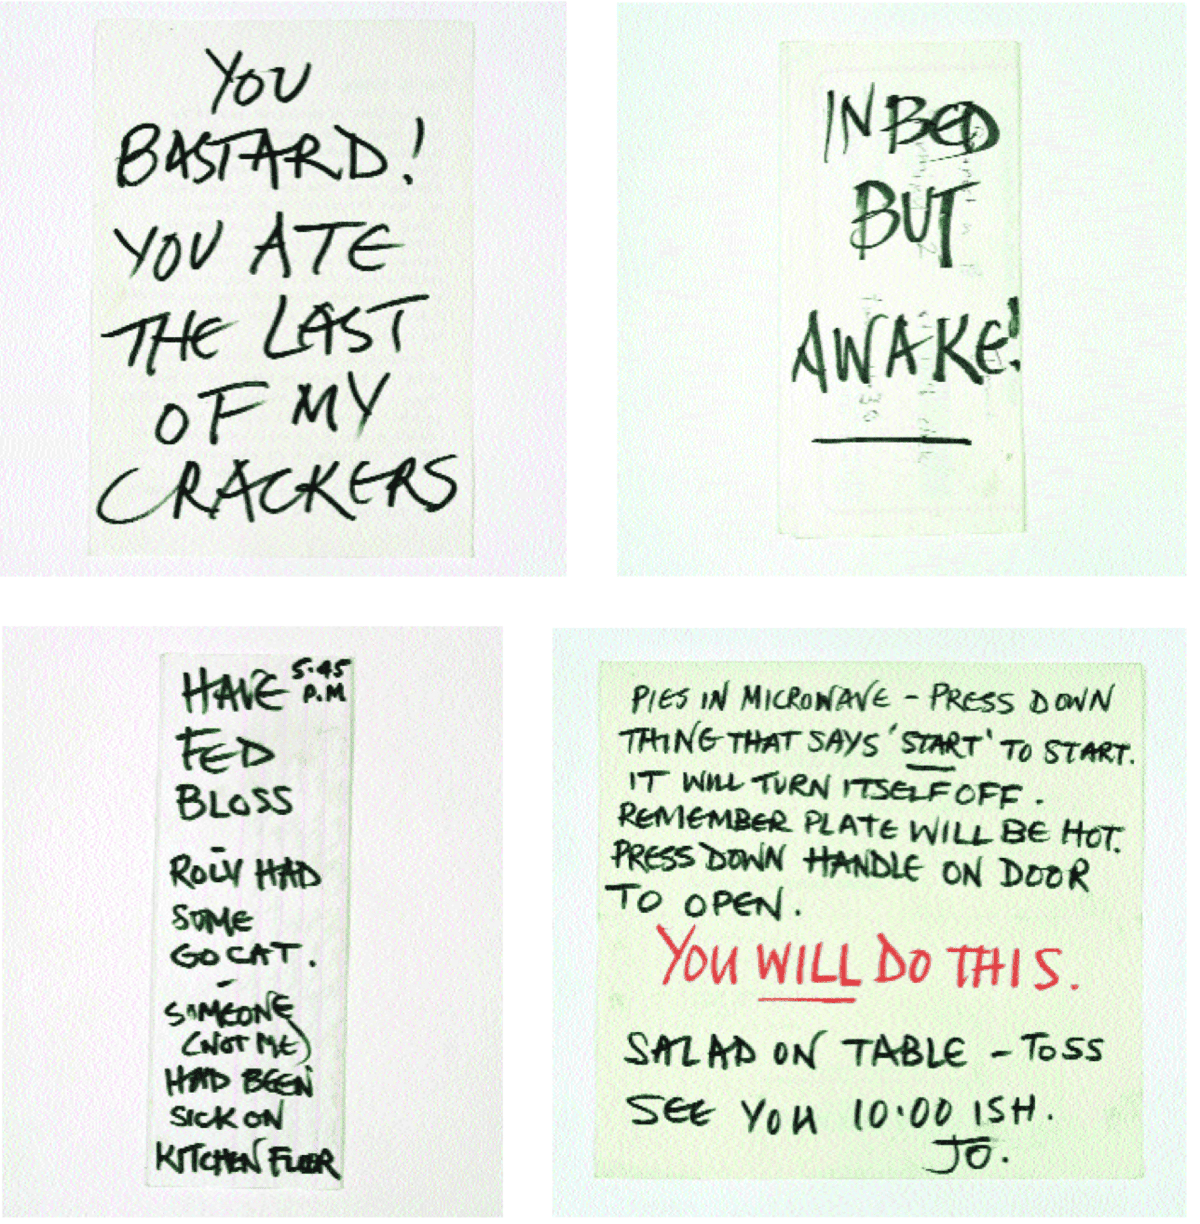 YOU
BASTARD!
YOU ATE
THE LAST
OF MY
CRACKERS
IN BED
BUT
AWAKE!
HAVE 5.45
P.M
FED
BLOSS
-
ROLY HAD
SOME
GO CAT.
-
SOMEONE
(NOT ME)
HAD BEEN
SICK ON
KITCHEN FLOOR
PIES IN MICROWAVE - PRESS DOWN
THING THAT SAYS 'START' TO START.
IT WILL TURN ITSELF OFF.
REMEMBER PLATE WILL BE HOT.
PRESS DOWN HANDLE ON DOOR
TO OPEN.
YOU WILL DO THIS.
SALAD ON TABLE - TOSS
SEE YOU 10.00 ISH.
JO.